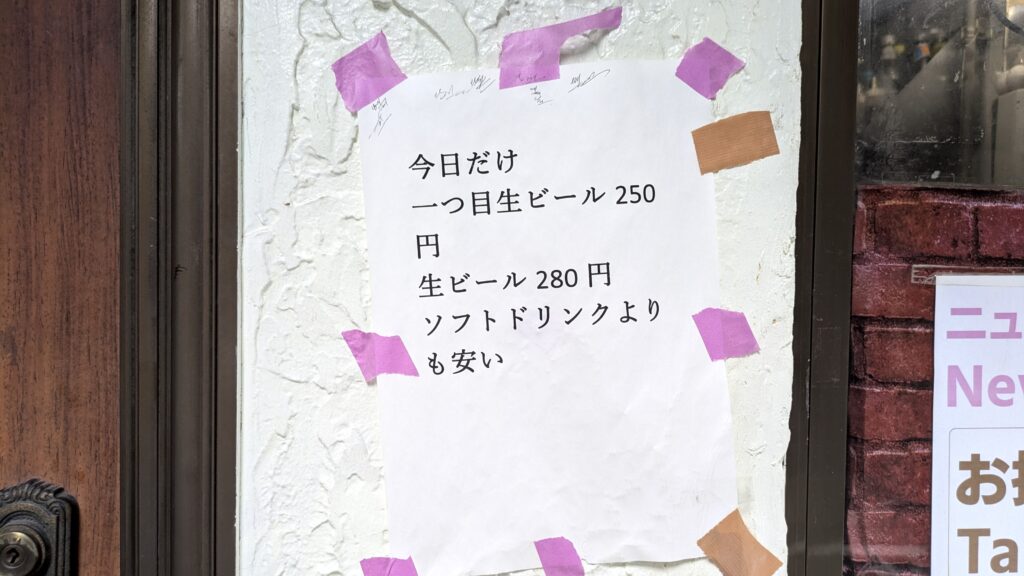 今日だけ
一つ目生ビール 250
円
生ビール 280 円
ソフトドリンクより
も安い
ニュ
New
お持
Ta